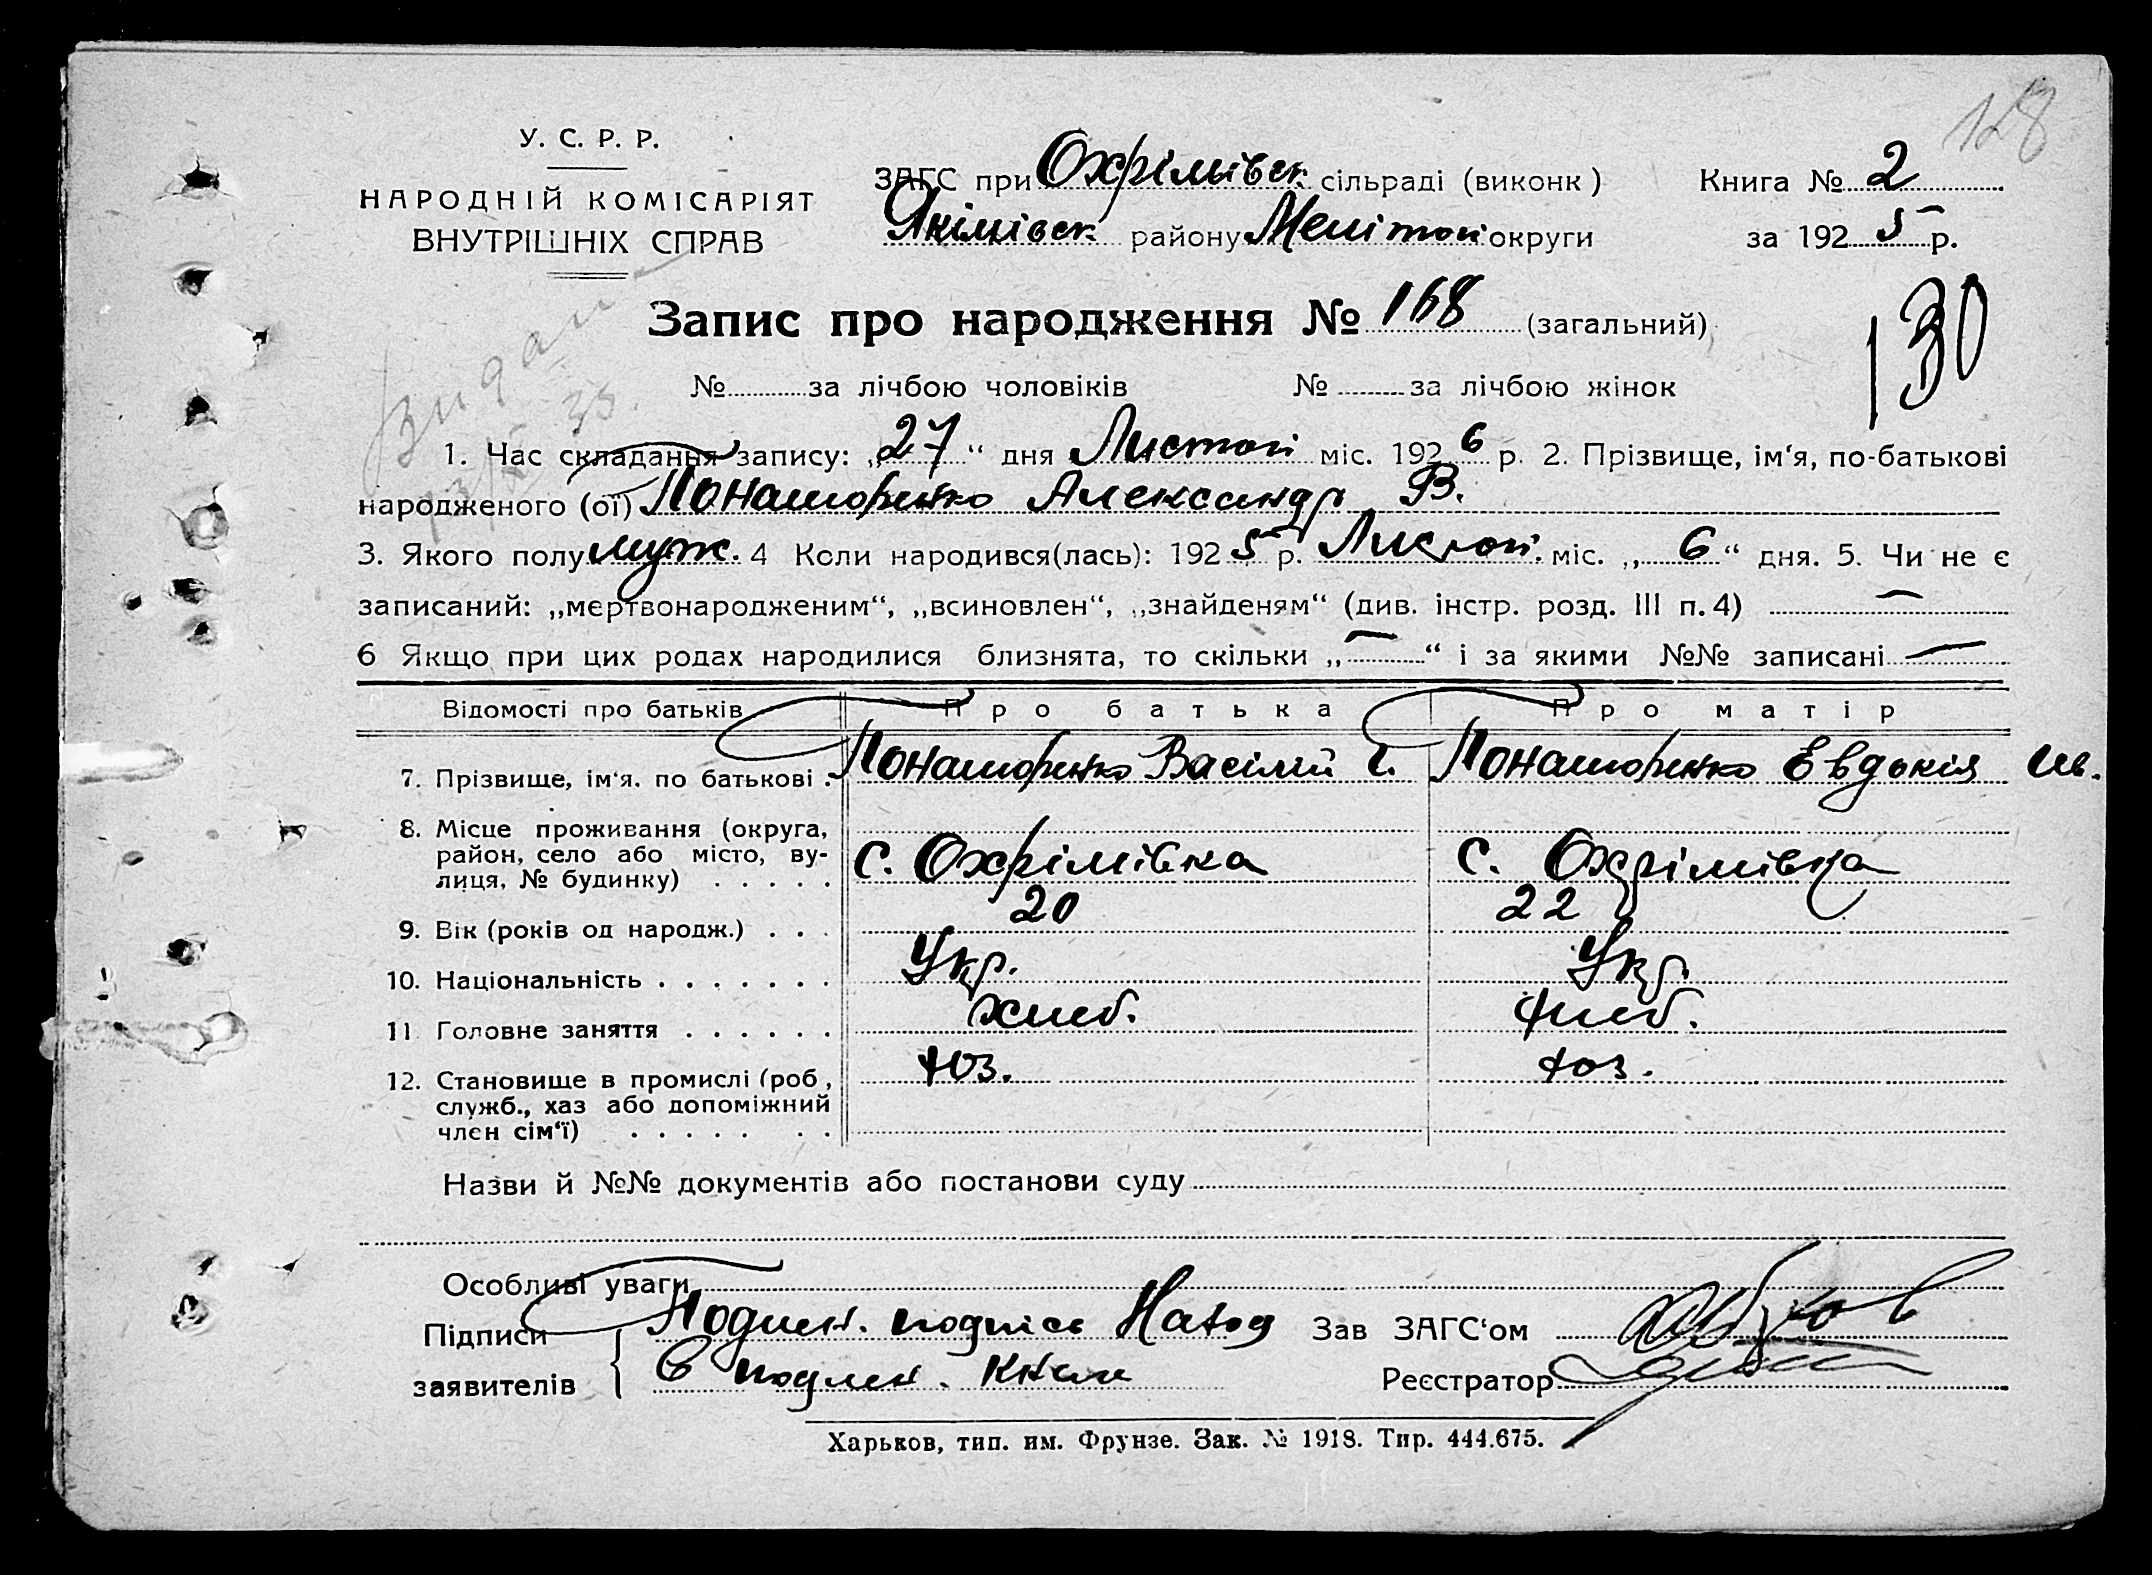 128
У. С. Р. Р.
НАРОДНІЙ КОМІСАРІЯТ
ВНУТРІШНІХ СПРАВ
ЗАГС при Охрімівск сільраді (виконк)
Якімівск району Мелітоп округи
Книга № 2
за 1925 р.
Запис про народження № 168 (загальний)
130
№ за лічбою чоловіків № за лічбою жінок
1. Час складання запису: „27“ дня Листоп міс. 1926 р. 2. Прізвище, ім‘я, по-батькові
народженого (ої) Понаморенко Александр В.
3. Якого полу муж. 4 Коли народився(лась): 1925 р. Листоп. міс. „6“ дня. 5. Чи не є
записаний: „мертвонародженим“, „всиновлен“, „знайденям“ (див. інстр. розд. III п. 4) —
6 Якщо при цих родах народилися близнята, то скільки „—“ і за якими №№ записані —
Відомості про батьків Про батька Про матір
7. Прізвище, ім‘я. по батькові . Понаморенко Васілій Г. Понаморенко Евдокія Ив.
8. Місце проживання (округа,
район, село або місто, ву-
лиця, № будинку) . . . . . с. Охрімівка с. Охрімівка
9. Вік (років од народж.) . . . 20 22
10. Національність . . . . . . . Укр. Укр.
11. Головне заняття . . . . . . хлеб. хлеб.
12. Становище в промислі (роб, хоз. хоз.
служб., хаз або допоміжний
член сім‘ї) . . . . . . .
Назви й №№ документів або постанови суду
Особливі уваги
Підписи Подлен. подпись Зав ЗАГС‘ом
заявителів в подлен. Книги Реєстратор
Харьков, тип. им. Фрунзе. Зак. № 1918. Тир. 444.675.